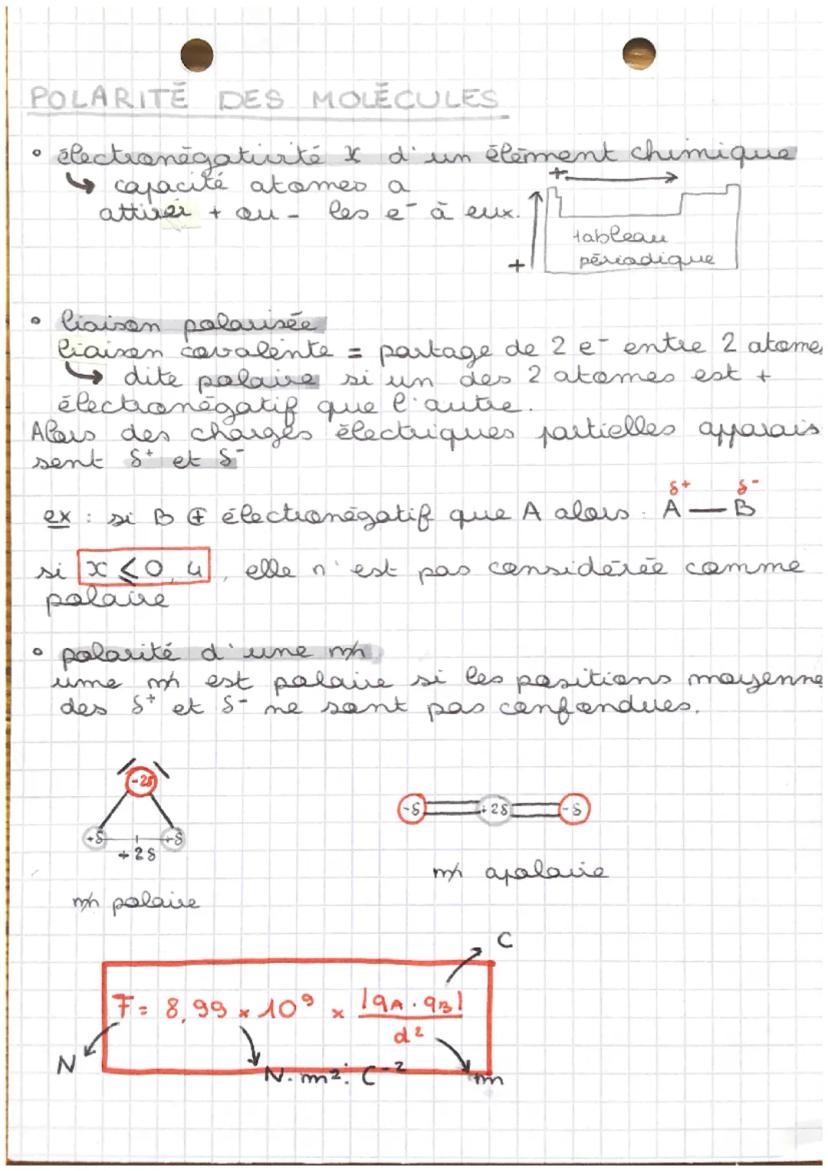 POLARITÉ DES MOLÉCULES
• électronégativité x d'un élément chimique
↳ capacité atomes a
attirer + ou - les e⁻ à eux.
+
+
tableau
périodique
• liaison polarisée
liaison covalente = partage de 2 e⁻ entre 2 atome
↳ dite polaire si un des 2 atomes est +
électronégatif que l'autre.
Alors des charges électriques partielles apparais
sent δ⁺ et δ⁻
δ⁺ δ⁻
ex : si B ⊕ électronégatif que A alors : A — B
si x ≤ 0,4, elle n'est pas considérée comme
polaire
• polarité d'une m/n
ume m/n est polaire si les positions moyenne
des δ⁺ et δ⁻ ne sont pas confondues.
-2δ
+δ +δ
+2δ
-δ +2δ -δ
m/n apolaire
m/n polaire
C
F = 8,99 × 10⁹ × |qA · qB| / d²
N
N. m². C⁻²
m